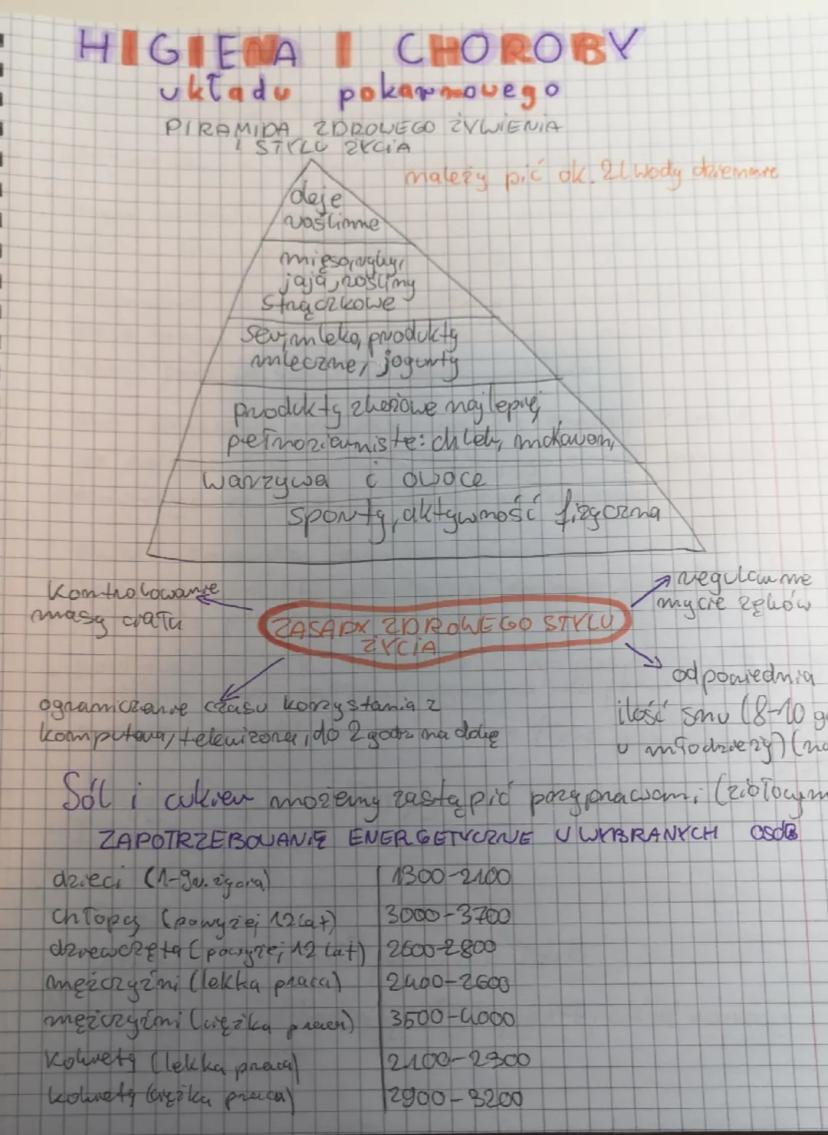 HIGIENA I CHOROBY
układu pokarmowego
PIRAMIDA ZDROWEGO ŻYWIENIA
I STYLU ŻYCIA
należy pić ok. 2l wody dziennie
oleje
roślinne
mięso, ryby,
jaja, rośliny
strączkowe
ser, mleko, produkty
mleczne, jogurty
produkty zbożowe najlepiej
pełnoziarniste: chleb, makaron,
warzywa i owoce
sporty, aktywność fizyczna
kontrolowanie
masy ciała
regularne
mycie zębów
ZASADY ZDROWEGO STYLU
ŻYCIA
odpowiednia
ilość snu (8-10 g
u młodzieży) (n
ograniczenie czasu korzystania z
komputera, telewizora, do 2 godz na dobę
Sól i cukier możemy zastąpić przyprawami, (ziołowym
ZAPOTRZEBOWANIE ENERGETYCZNE U WYBRANYCH OSÓB
dzieci (1-9 r. życia) 1300-2100
chłopcy (powyżej 12 lat) 3000-3700
dziewczęta (powyżej 12 lat) 2600-2800
mężczyźni (lekka praca) 2400-2600
mężczyźni (ciężka praca) 3500-4000
kobiety (lekka praca) 2100-2300
kobiety (ciężka praca) 2900-3200